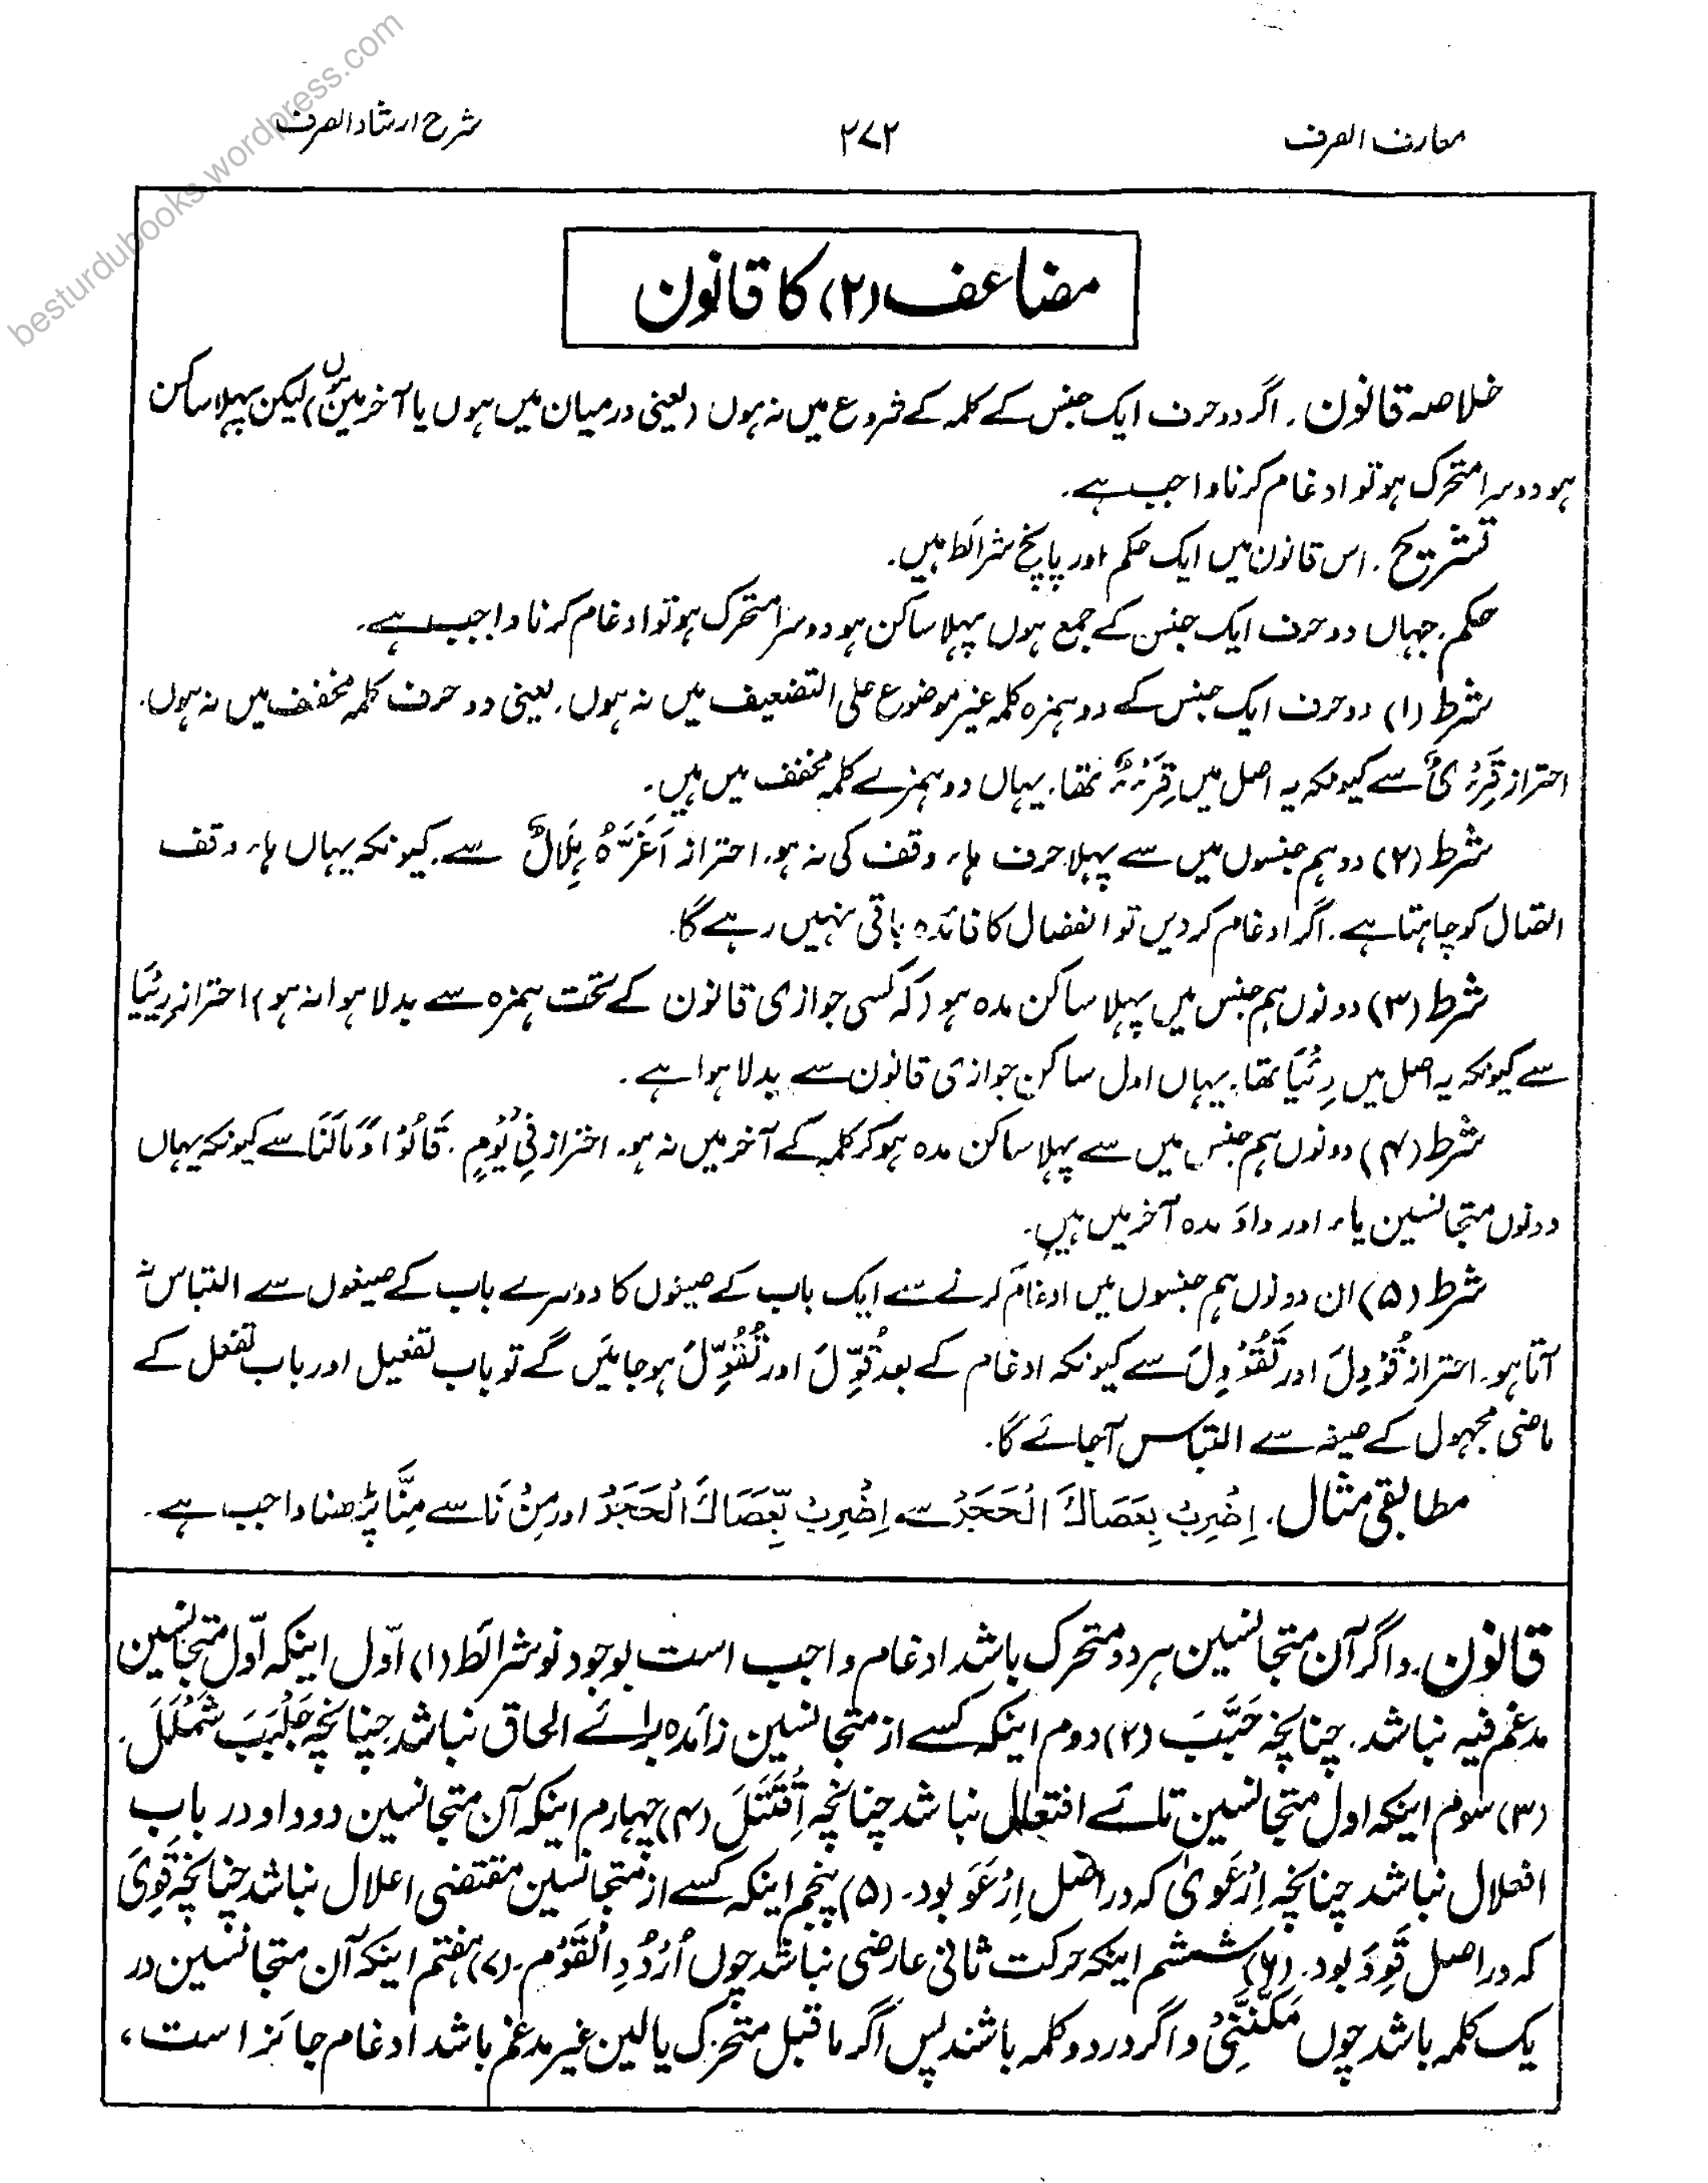 besturdubooks.wordpress.com
معارف الصرف ۲۷۲ شرح ارشاد الصرف
مضاعف (۲) کا قانون
خلاصہ قانون۔ اگر دو حرف ایک جنس کے کلمہ کے شروع میں نہ ہوں (یعنی درمیان میں ہوں یا آخر میں ہوں) لیکن پہلا ساکن
ہو دوسرا متحرک ہو تو ادغام کرنا واجب ہے۔
تشریح۔ اس قانون میں ایک حکم اور پانچ شرائط ہیں۔
حکم۔ جہاں دو حرف ایک جنس کے جمع ہوں پہلا ساکن ہو دوسرا متحرک ہو تو ادغام کرنا واجب ہے۔
شرط (۱) دو حرف ایک جنس کے دو ہمزہ کلمہ غیر موضوع علی التضعیف میں نہ ہوں۔ یعنی دو حرف کلمہ مخفف میں نہ ہوں۔
احتراز قِرَءْیٌ سے کیونکہ یہ اصل میں قِرَءْءٌ تھا۔ یہاں دو ہمزے کلمہ مخفف میں ہیں۔
شرط (۲) دو ہم جنسوں میں سے پہلا حرف ہاء وقف کی نہ ہو۔ احتراز اَغَرَّہْ ہِلَالٌ سے۔ کیونکہ یہاں ہاء وقف
اتصال کو چاہتا ہے۔ اگر ادغام کر دیں تو انفصال کا فائدہ باقی نہیں رہے گا۔
شرط (۳) دونوں ہم جنس میں پہلا ساکن مدہ ہو (کہ کسی جوازی قانون کے تحت ہمزہ سے بدلا ہوا نہ ہو) احتراز رِیْیَا
سے کیونکہ یہ اصل میں رِءْیَا تھا۔ یہاں اول ساکن جوازی قانون سے بدلا ہوا ہے۔
شرط (۴) دونوں ہم جنس میں سے پہلا ساکن مدہ ہو کر کلمہ کے آخر میں نہ ہو۔ احتراز فِیْ یَوْمٍ۔ قَالُوْا وَمَالَنَا سے کیونکہ یہاں
دونوں متجانسین یاء اور واؤ مدہ آخر میں ہیں۔
شرط (۵) ان دونوں ہم جنسوں میں ادغام کرنے سے ایک باب کے صیغوں کا دوسرے باب کے صیغوں سے التباس نہ
آتا ہو۔ احتراز قُوْوِلَ اور تُقُوْوِلَ سے کیونکہ ادغام کے بعد قُوِّلَ اور تُقُوِّلَ ہو جائیں گے تو باب تفعیل اور باب تفعل کے
ماضی مجہول کے صیغہ سے التباس آجائے گا۔
مطابقی مثال۔ اِضْرِبْ بِعَصَاكَ الْحَجَرْ سے اِضْرِبْ بِّعَصَاكَ الْحَجَرْ اور مِنْ نَا سے مِنَّا پڑھنا واجب ہے۔
قانون۔ واگر آں متجانسین ہر دو متحرک باشد ادغام واجب است بوجود نو شرائط (۱) اوّل اینکہ اوّل متجانسین
مدغم فیہ نباشد۔ چنانچہ حَبَّبَ (۲) دوم اینکہ کسے از متجانسین زائدہ برائے الحاق نباشد چنانچہ جَلْبَبَ شَمْلَلَ۔
(۳) سوم اینکہ اول متجانسین تائے افتعال نباشد چنانچہ اِقْتَتَلَ (۴) چہارم اینکہ آں متجانسین دو واو در باب
افعلال نباشد چنانچہ اِرْعَوٰی کہ در اصل اِرْعَوَوَ بود۔ (۵) پنجم اینکہ کسے از متجانسین مقتضی اعلال نباشد چنانچہ قَوِیَ
کہ در اصل قَوِوَ بود۔ (۶) ششم اینکہ حرکت ثانی عارضی نباشد چوں اُرْدُدِ الْقَوْم۔ (۷) ہفتم اینکہ آں متجانسین در
یک کلمہ باشد چوں مَکَّنَّنِیْ واگر در دو کلمہ باشند پس اگر ماقبل متحرک یا لین غیر مدغم باشد ادغام جائز است،